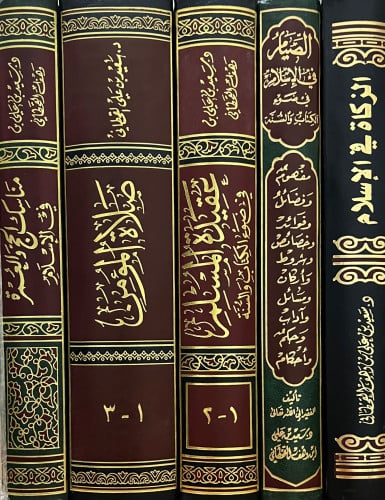 الزكاة في الإسلام
د. سعيد بن علي بن وهف القحطاني
الصيام
في الإسلام
في ضوء
الكتاب والسنة
مفهوم
وفضائل
وفوائد
وخصائص
وشروط
وأركان
ومسائل
وآداب
وحكم
وأحكام
تأليف
الفقير إلى الله تعالى
د. سعيد بن علي
ابن وهف القحطاني
د. سعيد بن علي بن
وهف القحطاني
عقيدة المسلم
في ضوء الكتاب والسنة
١-٢
د. سعيد بن علي القحطاني
صلاة المؤمن
١-٣
د. سعيد بن علي بن
وهف القحطاني
مناسك الحج والعمرة
في الإسلام